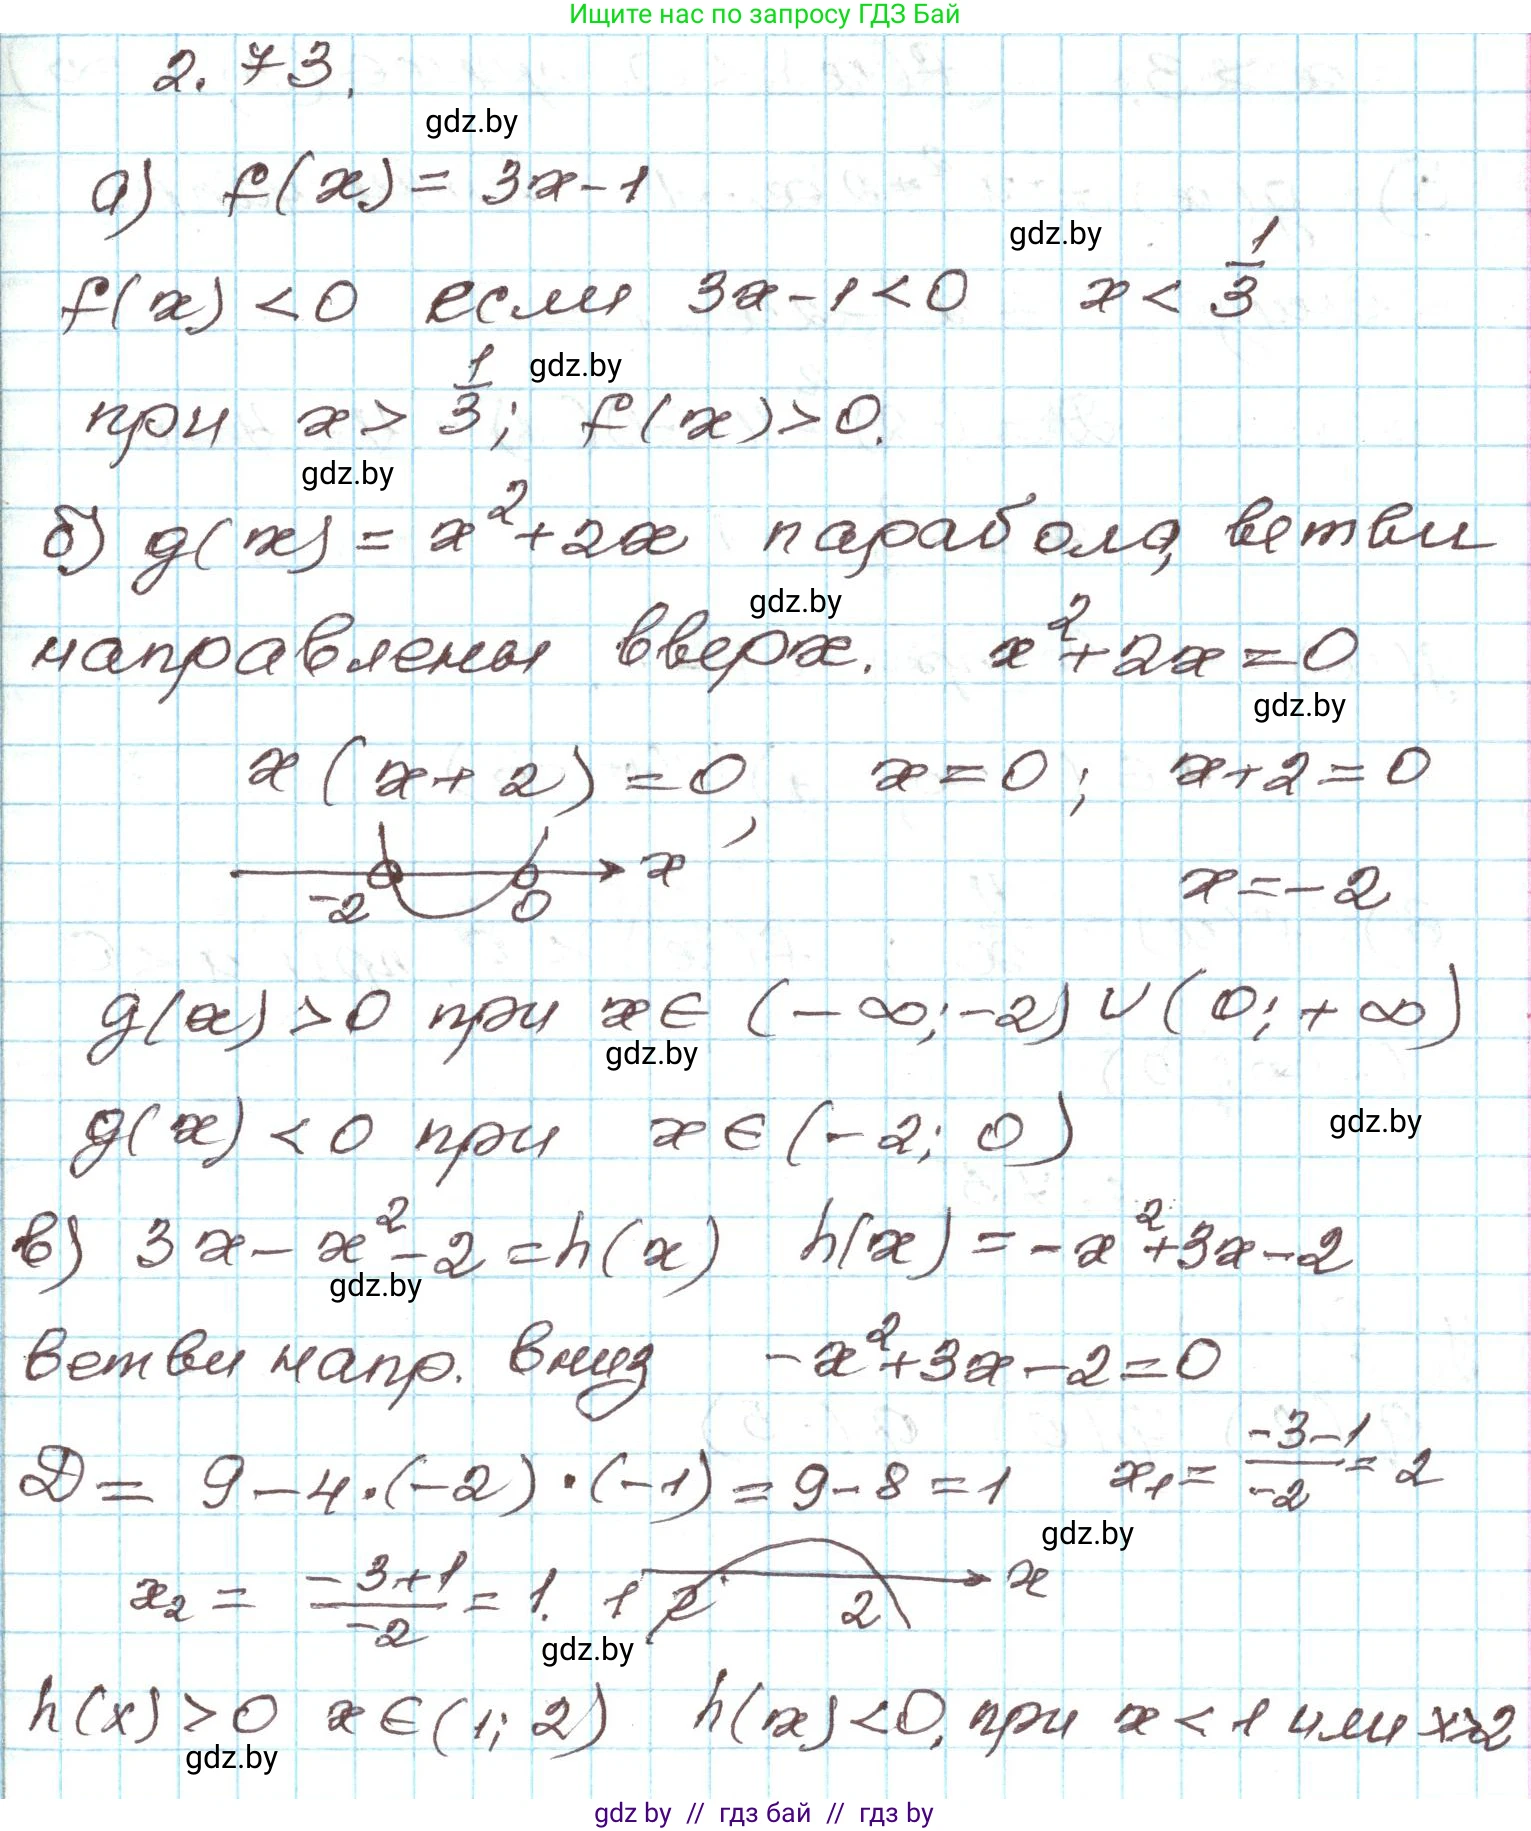 Ищите нас по запросу ГДЗ Бай
2.73.
gdz.by
а) f(x) = 3x-1
gdz.by
f(x) <0 если 3x-1<0 x< 1/3
gdz.by
при x> 1/3; f(x)>0.
gdz.by
б) g(x) = x²+2x парабола, ветви
gdz.by
направлены вверх. x²+2x=0
gdz.by
x(x+2)=0, x=0; x+2=0
x
-2 0 x=-2
g(x)>0 при x∈ (-∞;-2)∪(0;+∞)
gdz.by
g(x)<0 при x∈(-2; 0)
gdz.by
в) 3x-x²-2=h(x) h(x)=-x²+3x-2
gdz.by
ветви напр. вниз -x²+3x-2=0
D= 9-4·(-2)·(-1)=9-8=1 x₁= (-3-1)/(-2) = 2
gdz.by
x₂= (-3+1)/(-2) = 1. 1 2 x
gdz.by
h(x)>0 x∈(1; 2) h(x)<0, при x<1 или x>2
gdz.by
gdz by // гдз бай // гдз by